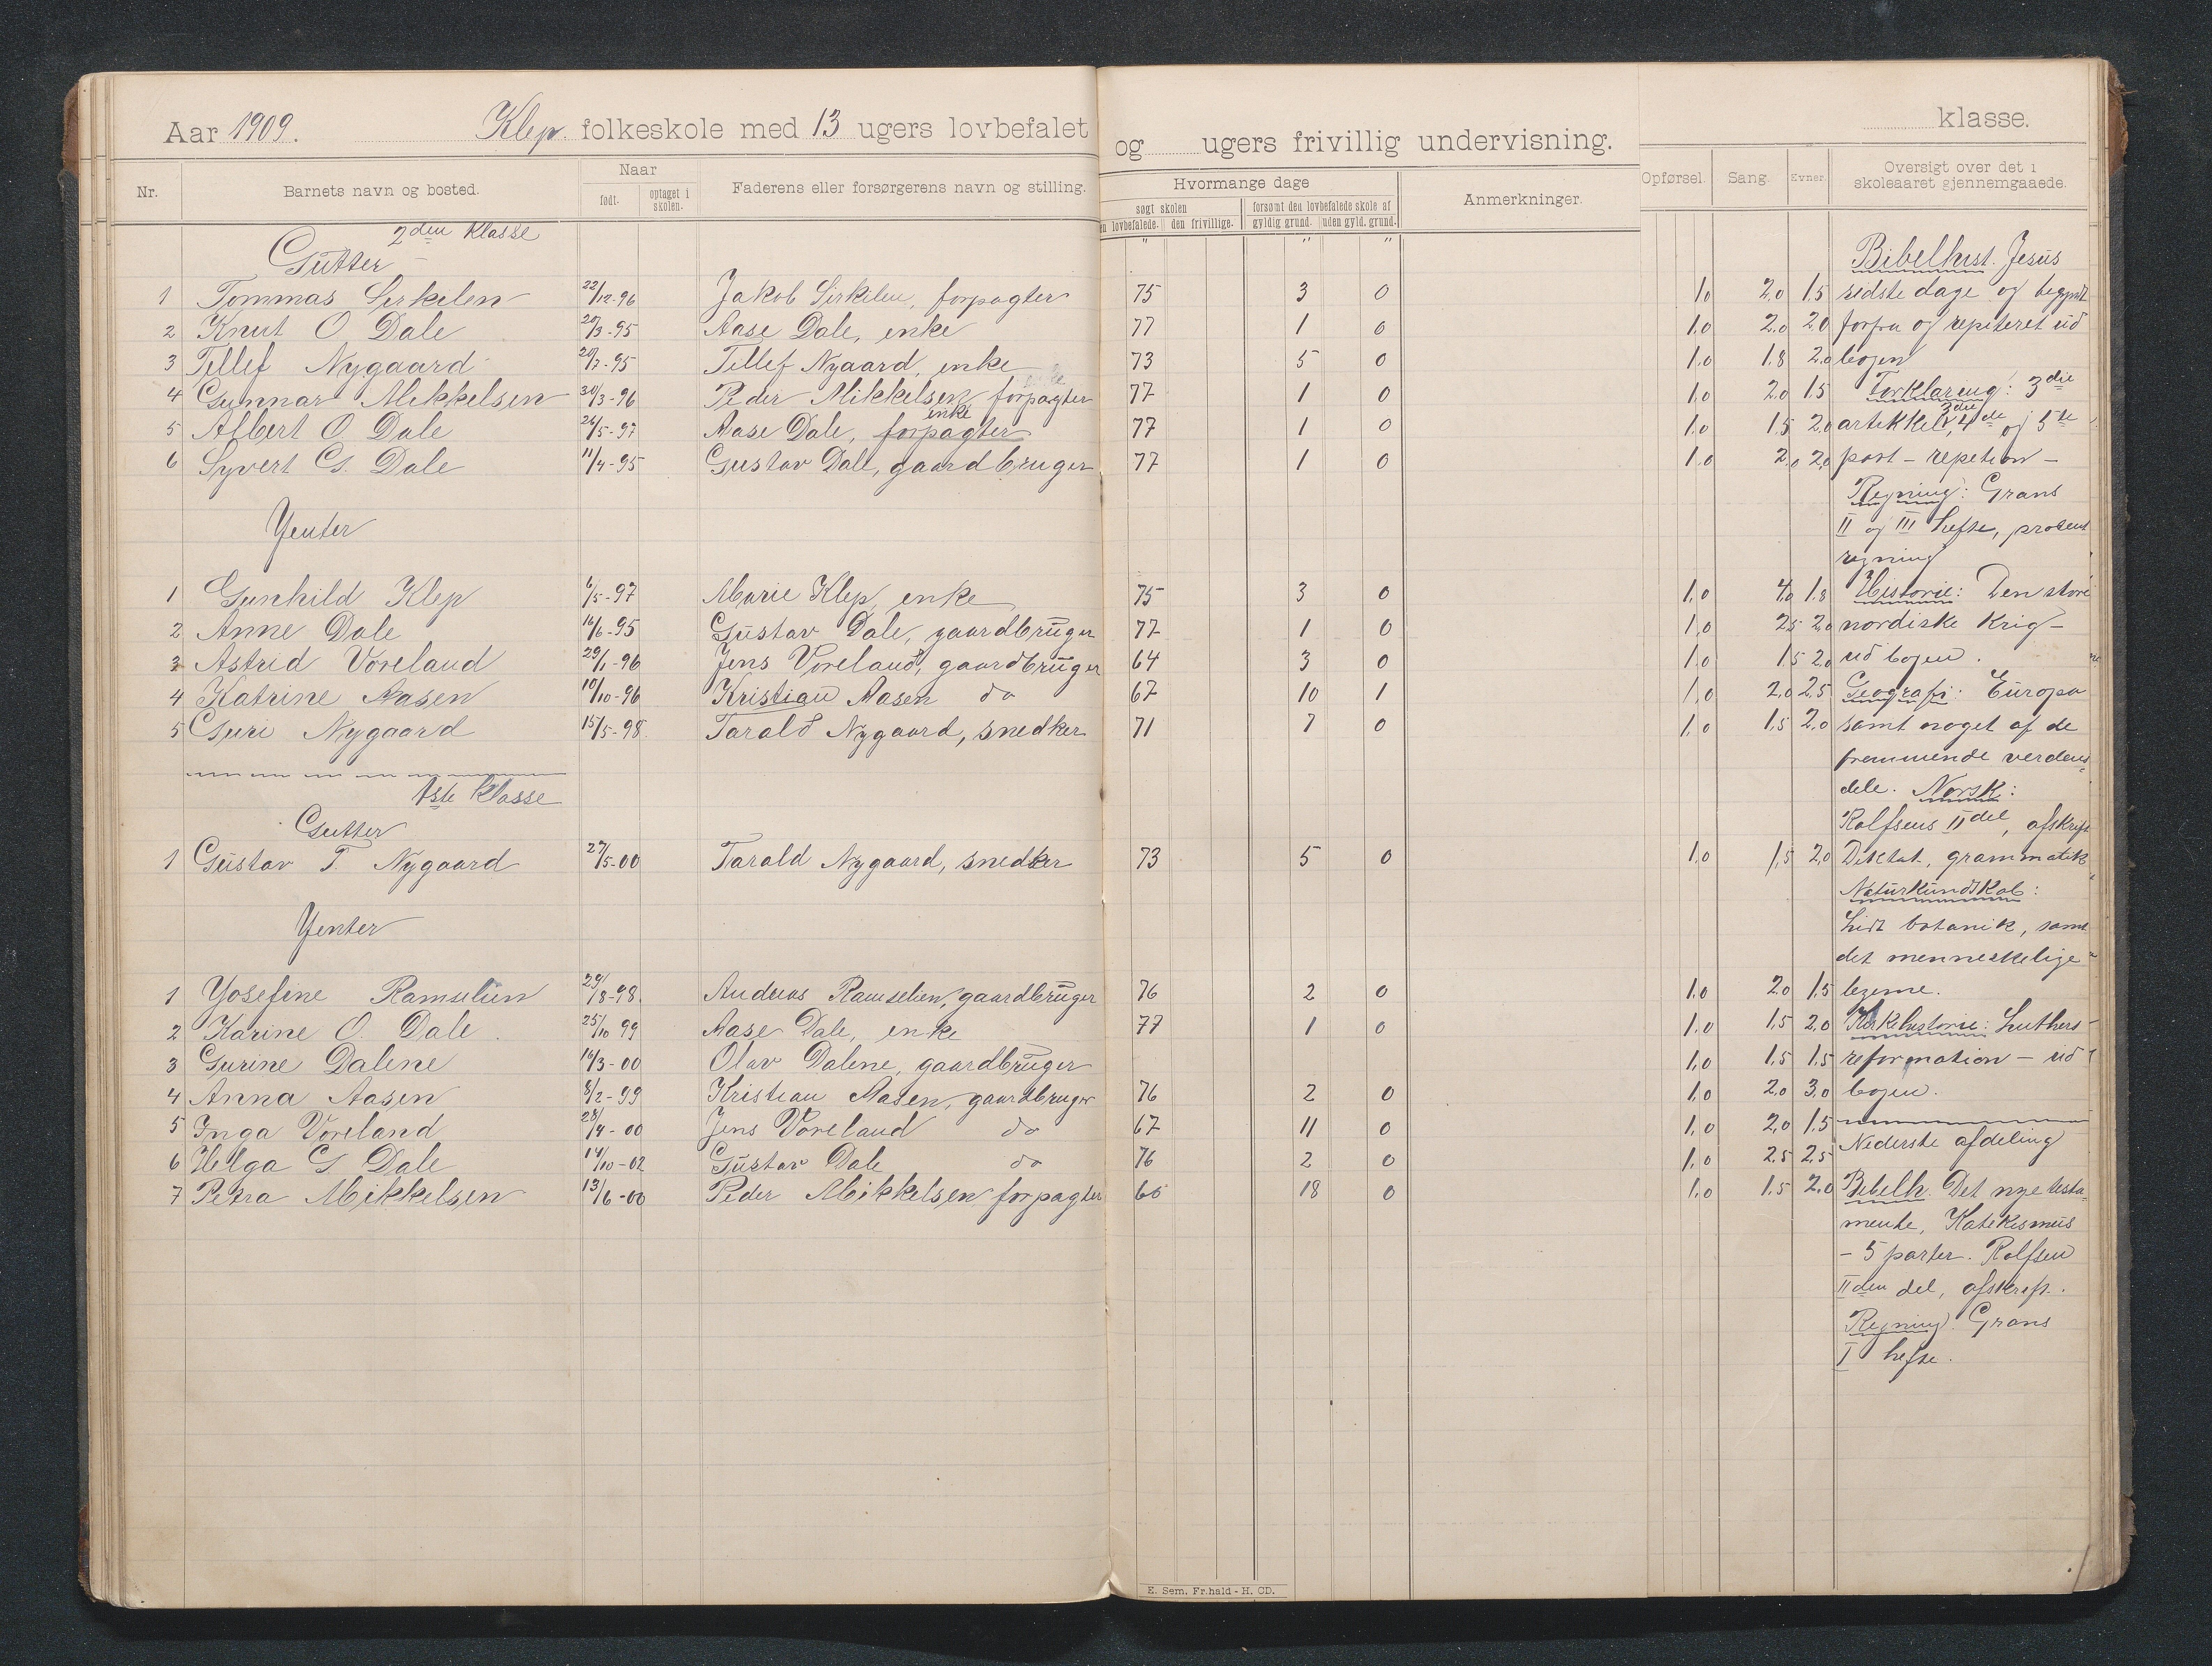 Aar 1909. Klep folkeskole med 13 ugers lovbefalet og ugers frivillig undervisning. klasse.
Nr. Barnets navn og bosted. Naar født. optaget i skolen. Faderens eller forsørgerens navn og stilling. Hvormange dage søgt skolen den lovbefalede. den frivillige. forsømt den lovbefalede skole af gyldig grund. uden gyld. grund. Anmerkninger. Opførsel. Sang. Evner. Oversigt over det i skoleaaret gjennemgaaede.
2den Klasse
Gutter
" " "
1 Tommas Sirkelen 22/12-96 Jakob Sirkelen, forpagter 75 3 0 1,0 2,0 1,5
2 Knut O. Dale 20/3-95 Aase Dale, enke 77 1 0 1,0 2,0 2,0
3 Tellef Nygaard 20/7-95 Tellef Nygaard, enke 73 5 0 1,0 1,8 2,0
4 Gunnar Mikkelsen 30/3-96 Peder Mikkelsen, forpagter 77 1 0 1,0 2,0 1,5
enke
5 Albert O. Dale 24/5-97 Aase Dale, forpagter 77 1 0 1,0 1,5 2,0
6 Syvert G. Dale 11/4-95 Gustav Dale, gaardbruger 77 1 0 1,0 2,0 2,0
Yenter
1 Gunhild Klep 6/5-97 Marie Klep, enke 75 3 0 1,0 4,0 1,8
2 Anne Dale 16/6-95 Gustav Dale, gaardbruger 77 1 0 1,0 2,5 2,0
3 Astrid Voreland 29/1-96 Jens Voreland, gaardbruger 64 3 0 1,0 1,5 2,0
4 Katrine Aasen 10/10-96 Kristian Aasen do 67 10 1 1,0 2,0 2,5
5 Guri Nygaard 15/5-98. Tarald Nygaard, snedker 71 7 0 1,0 1,5 2,0
1ste Klasse
Gutter
1 Gustav T. Nygaard 27/5-00 Tarald Nygaard, snedker 73 5 0 1,0 1,5 2,0
Yenter
1 Yosefine Ramselien 29/8-98. Andreas Ramselien, gaardbruger 76 2 0 1,0 2,0 1,5
2 Karine O. Dale 25/10 99 Aase Dale, enke 77 1 0 1,0 1,5 2,0
3 Gurine Dalene 16/3-00 Olav Dalene, gaardbruger 1,0 1,5 1,5
4 Anna Aasen 8/2-99 Kristian Aasen, gaardbruger 76 2 0 1,0 2,0 3,0
5 Inga Voreland 28/4-00 Jens Voreland do 67 11 0 1,0 2,0 1,5
6 Helga G Dale 14/10-02 Gustav Dale do 76 2 0 1,0 2,5 2,5
7 Petra Mikkelsen 13/6-00 Peder Mikkelsen forpagter 60 18 0 1,0 1,5 2,0
Bibelhist. Jesus
sidste dage og begyndt
forfra og repiteret ud
bogen
Forklaring: 3die
artikkel, 3die 4de og 5te
part - repetion -
Regning: Grans
II og III hefte, procent
regning
Historie: Den store
nordiske Krig -
ud bogen.
Geografi: Europa
samt noget af de
fremmende verdens-
dele. Norsk:
Rolfsens II del, afskrift
Diktat, grammatik
Naturkundskab:
Lidt botanik, samt
det menneskelige
legeme.
Kirkehistorie: Luthers
reformation - ud
bogen.
Nederste afdeling
Bibelh. Det nye testa-
mente, Katekismus
- 5 parter. Rolfsen
II den del, afskrift.
Regning. Grans
I hefte.
E. Sem, Fr.hald - H. CD.